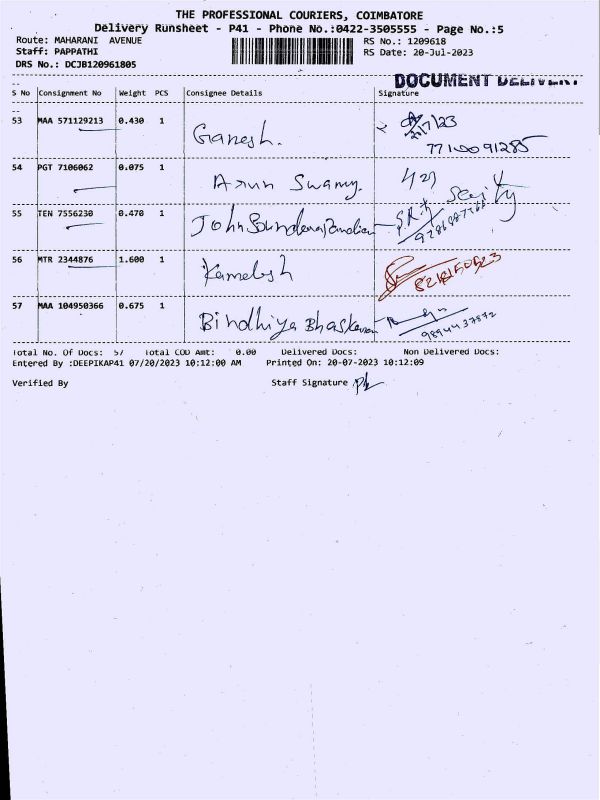 THE PROFESSIONAL COURIERS, COIMBATORE
Delivery Runsheet - P41 - Phone No.:0422-3505555 - Page No.:5
Route: MAHARANI AVENUE
RS No.: 1209618
Staff: PAPPATHI
RS Date: 20-Jul-2023
DRS No.: DCJB120961805
DOCUMENT DELIVERY
S No Consignment No Weight PCS Consignee Details Signature
53 MAA 571129213 0.430 1 Ganesh.
54 PGT 7106062 0.075 1 Arun Swamy.
55 TEN 7556230 0.470 1 John
56 MTR 2344876 1.600 1 Kamalesh
57 MAA 104950366 0.675 1 Bindhiya Bhaskaran
9894437872
Total No. Of Docs: 57 Total COD Amt: 0.00 Delivered Docs: Non Delivered Docs:
Entered By :DEEPIKAP41 07/20/2023 10:12:00 AM Printed On: 20-07-2023 10:12:09
Verified By Staff Signature